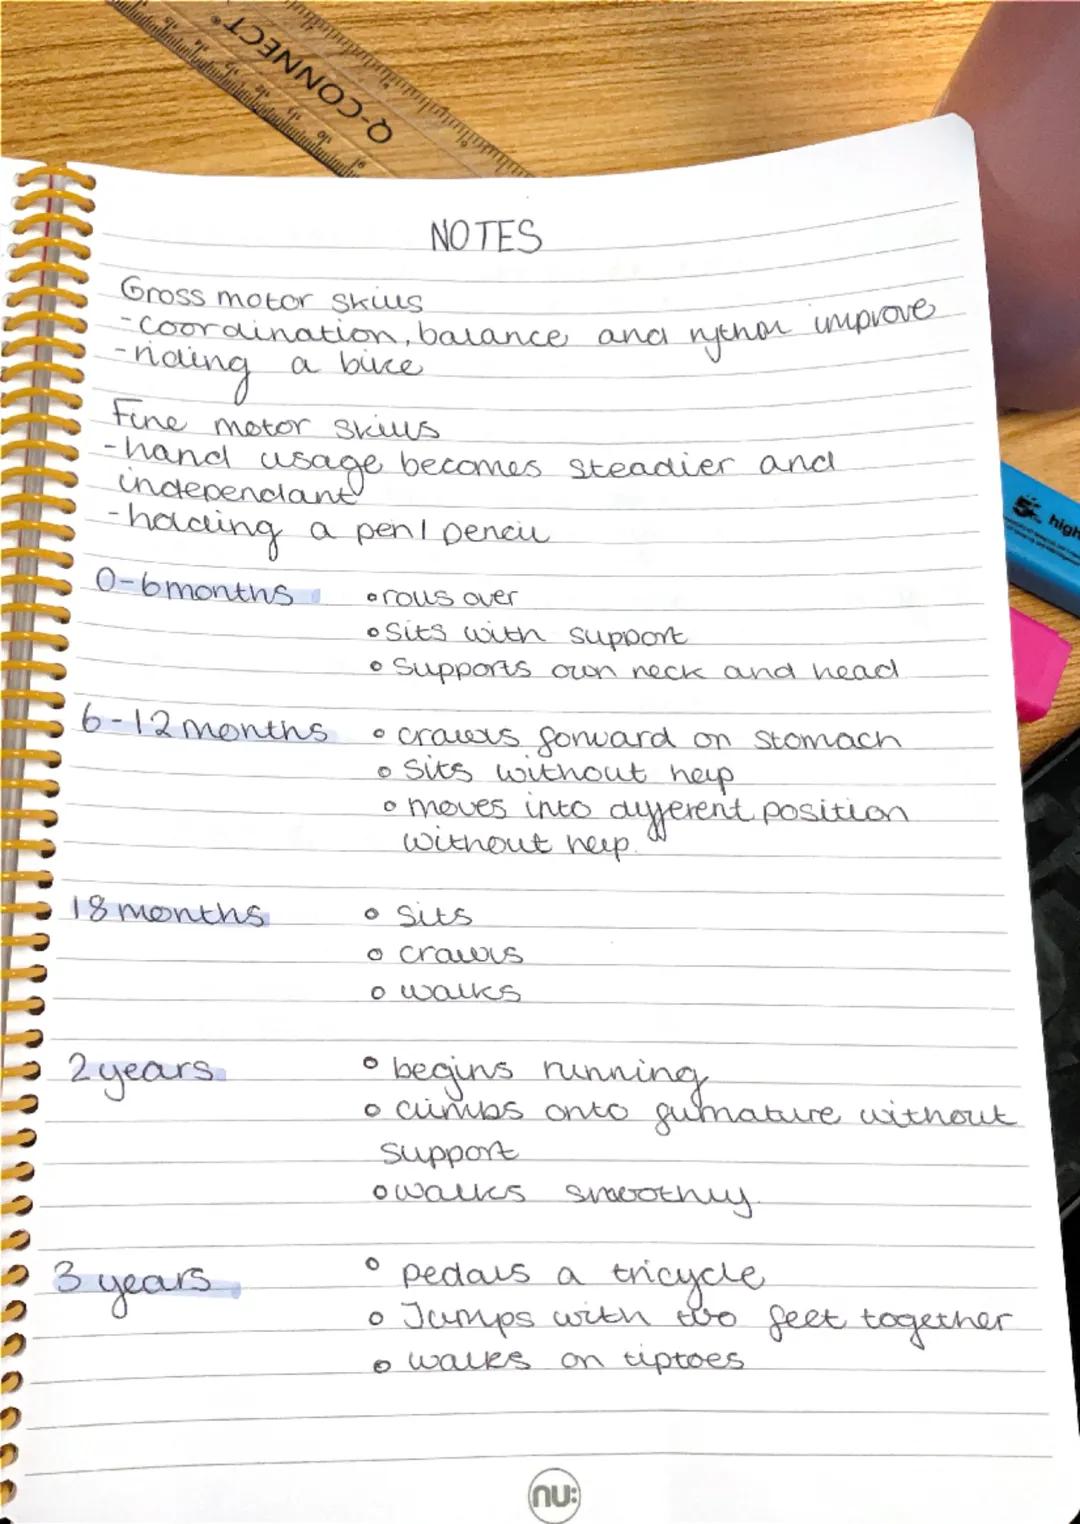 Q-CONNECT
NOTES
Gross motor skills
- coordination, balance and improve
- riding a bike
Fine motor skills
- hand usage becomes steadier and
independant
- holding a pen/pencil
0-6 months • rolls over
• Sits with support
• Supports own neck and head
6-12 months • crawls forward on stomach
• Sits without help
• moves into different position
without help.
18 months • Sits
• crawls
• walks
2 years • begins running
• climbs onto without
support
• walks smoothly.
3 years • pedals a tricycle
• Jumps with two feet together
• walks on tiptoes
high
nu: